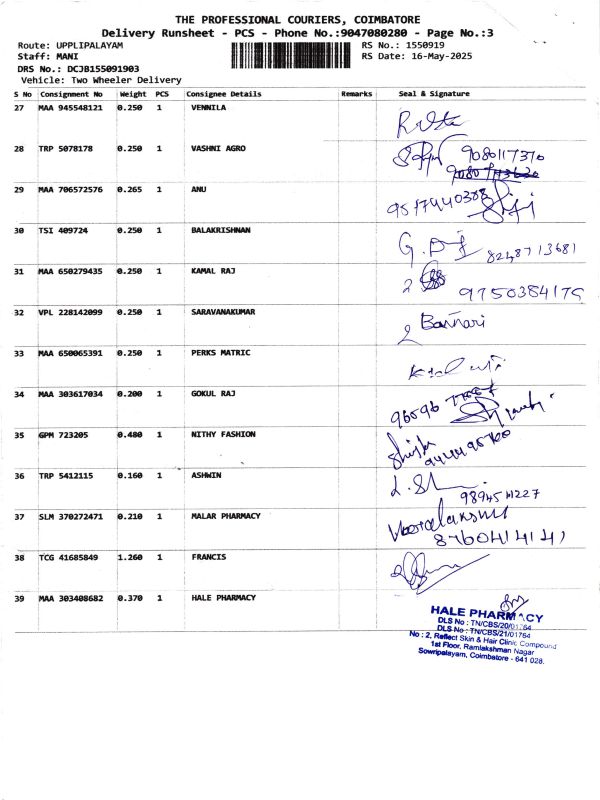 THE PROFESSIONAL COURIERS, COIMBATORE
Delivery Runsheet - PCS - Phone No.:9047080280 - Page No.:3
Route: UPPLIPALAYAM RS No.: 1550919
Staff: MANI RS Date: 16-May-2025
DRS No.: DCJB155091903
Vehicle: Two Wheeler Delivery
S No Consignment No Weight PCS Consignee Details Remarks Seal & Signature
27 MAA 945548121 0.250 1 VENNILA
28 TRP 5078178 0.250 1 VASHNI AGRO
9080117370
29 MAA 706572576 0.265 1 ANU
9517440388
30 TSI 409724 0.250 1 BALAKRISHNAN
8248713681
31 MAA 650279435 0.250 1 KAMAL RAJ
9750384175
32 VPL 228142099 0.250 1 SARAVANAKUMAR
Bannari
33 MAA 650065391 0.250 1 PERKS MATRIC
34 MAA 303617034 0.200 1 GOKUL RAJ
96596
35 GPM 723205 0.480 1 NITHY FASHION
36 TRP 5412115 0.160 1 ASHWIN
37 SLM 370272471 0.210 1 MALAR PHARMACY
8760414141
38 TCG 41685849 1.260 1 FRANCIS
39 MAA 303408682 0.370 1 HALE PHARMACY
HALE PHARMACY
DLS No : TN/CBS/20/01764
DLS No : TN/CBS/21/01764
No : 2, Reflect Skin & Hair Clinic Compound
1st Floor, Ramlakshman Nagar
Sowripalayam, Coimbatore - 641 028.